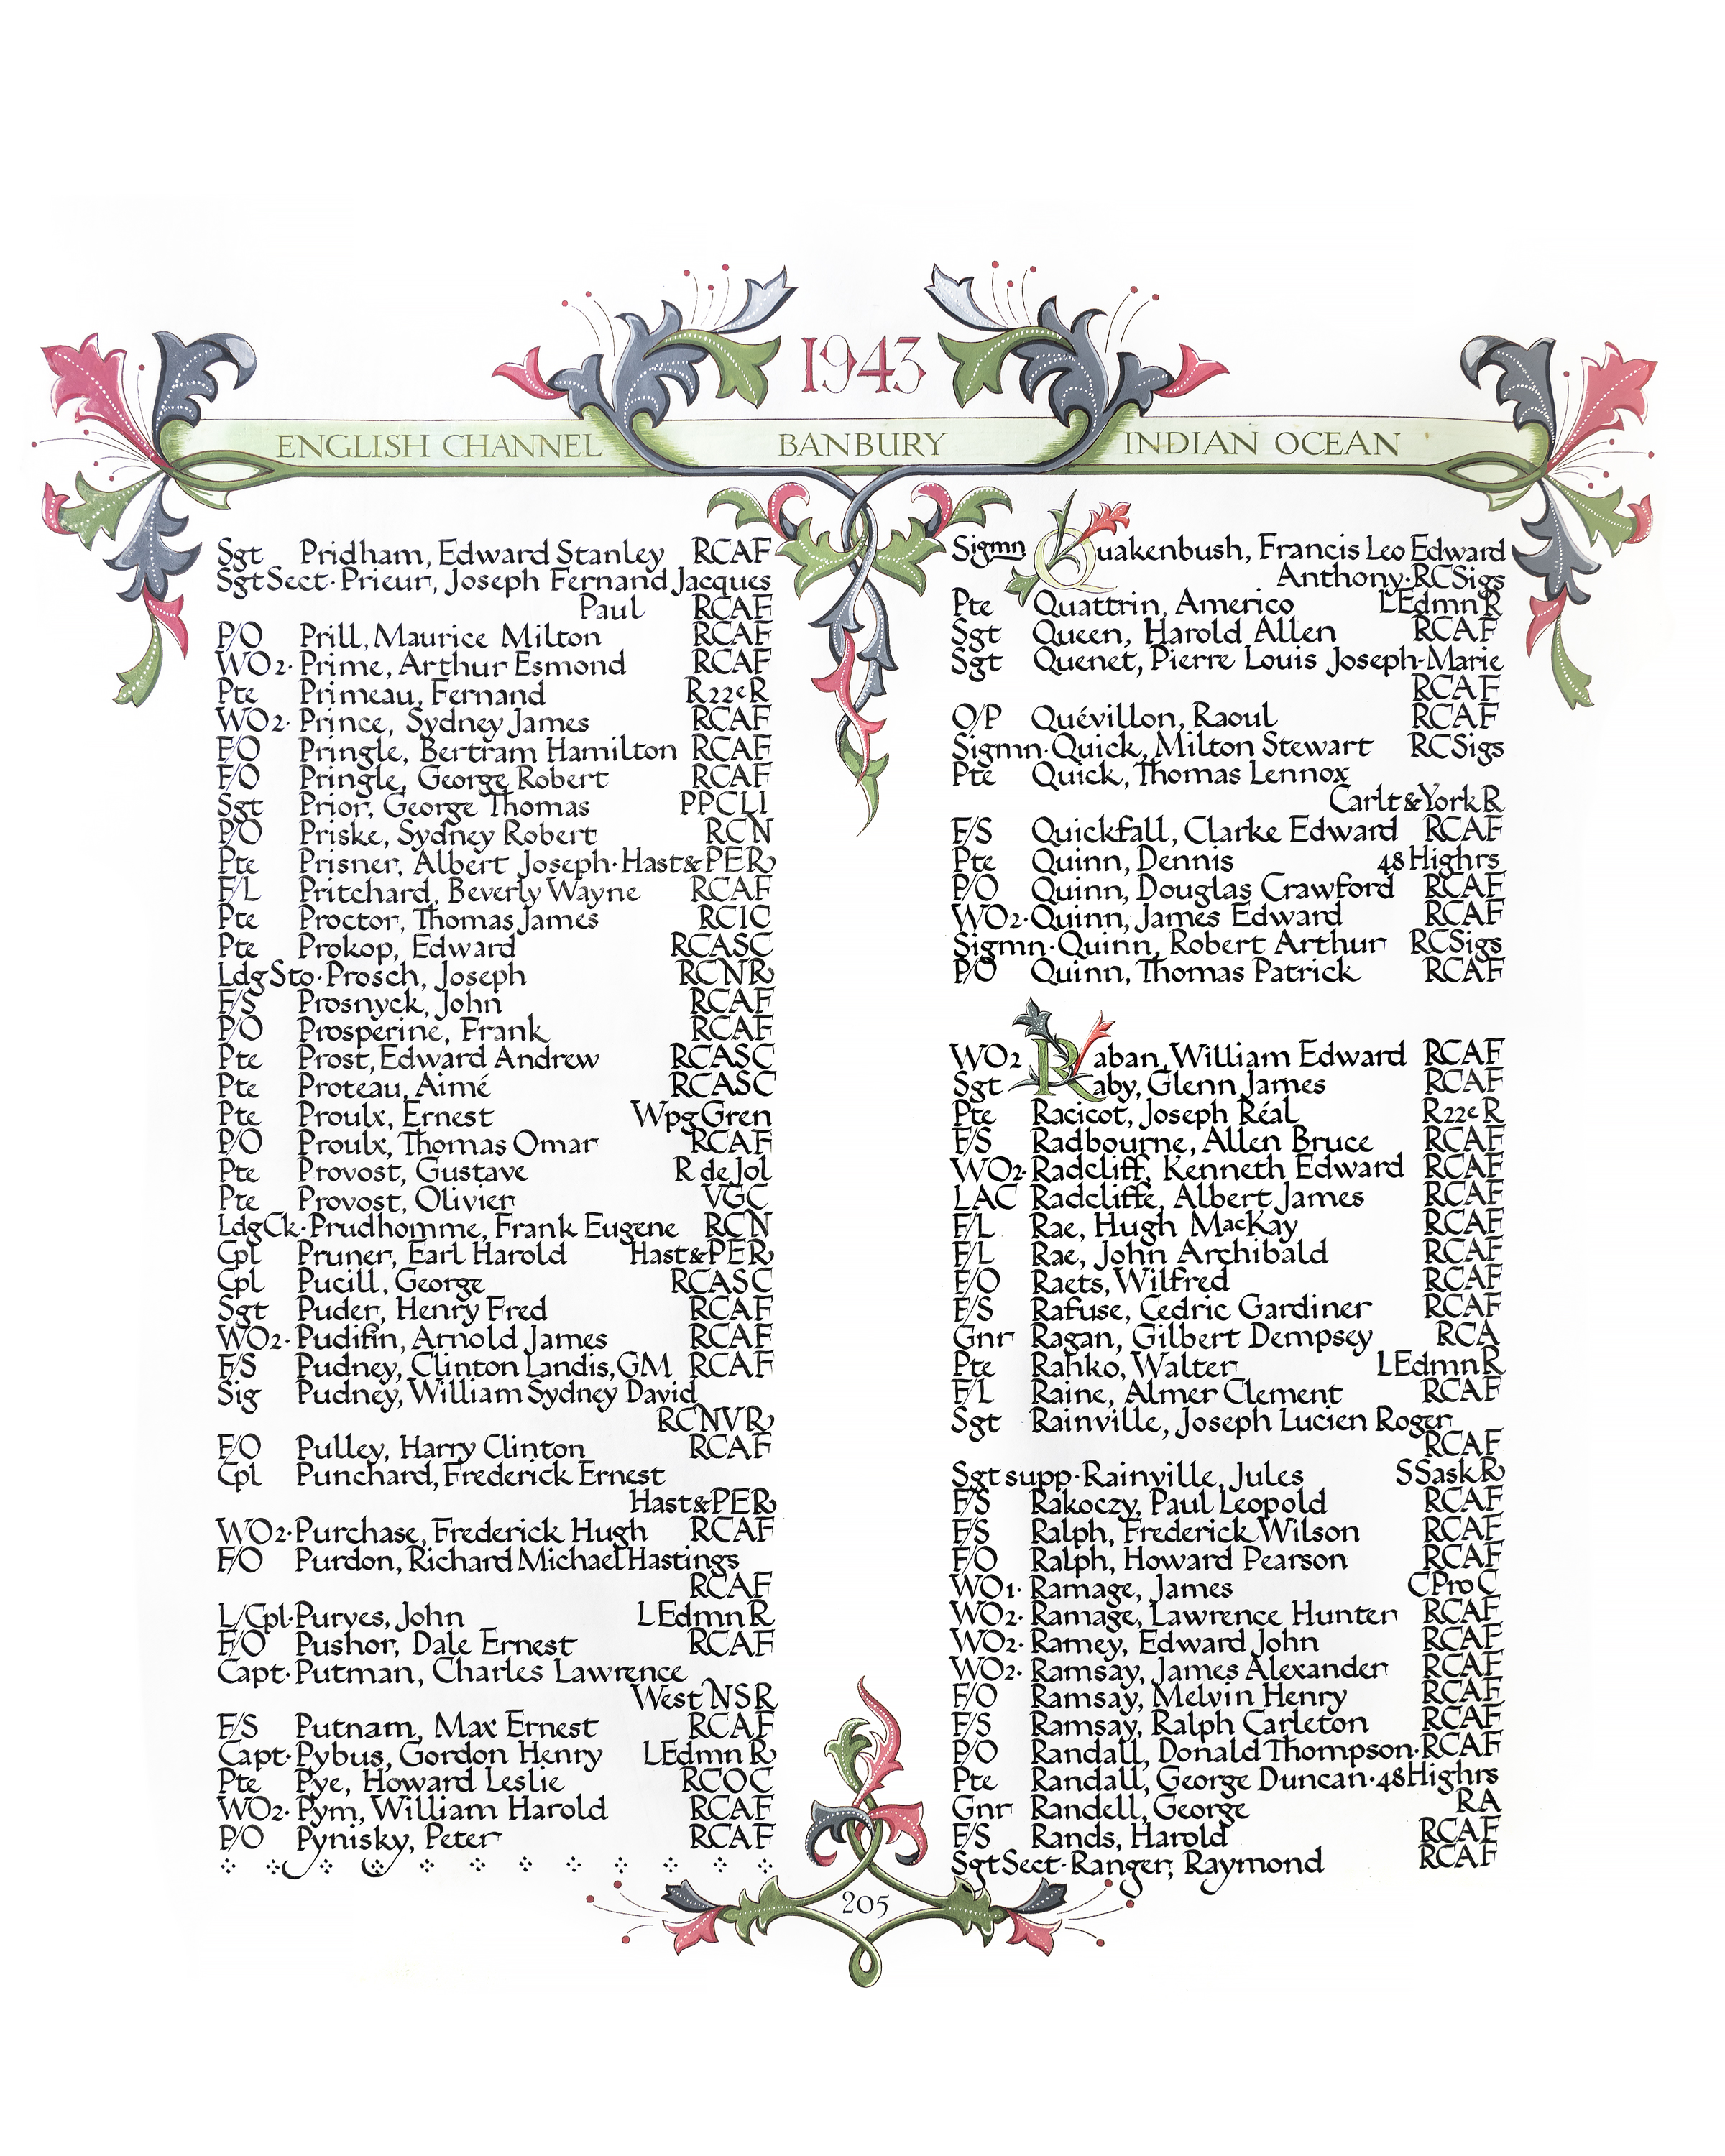 1943
ENGLISH CHANNEL BANBURY INDIAN OCEAN
Sgt Pridham, Edward Stanley RCAF
SgtSect·Prieur, Joseph Fernand Jacques
Paul RCAF
P/O Prill, Maurice Milton RCAF
WO2·Prime, Arthur Esmond RCAF
Pte Primeau, Fernand R22eR
WO2·Prince, Sydney James RCAF
F/O Pringle, Bertram Hamilton RCAF
F/O Pringle, George Robert RCAF
Sgt Prior, George Thomas PPCLI
P/O Priske, Sydney Robert RCN
Pte Prisner, Albert Joseph·Hast&PER
F/L Pritchard, Beverly Wayne RCAF
Pte Proctor, Thomas James RCIC
Pte Prokop, Edward RCASC
LdgSto·Prosch, Joseph RCNR
F/S Prosnyck, John RCAF
P/O Prosperine, Frank RCAF
Pte Prost, Edward Andrew RCASC
Pte Proteau, Aimé RCASC
Pte Proulx, Ernest WpgGren
P/O Proulx, Thomas Omar RCAF
Pte Provost, Gustave R de Jol
Pte Provost, Olivier VGC
LdgCk·Prudhomme, Frank Eugene RCN
Cpl Pruner, Earl Harold Hast&PER
Cpl Pucill, George RCASC
Sgt Puder, Henry Fred RCAF
WO2·Pudifin, Arnold James RCAF
F/S Pudney, Clinton Landis, GM RCAF
Sig Pudney, William Sydney David
RCNVR
F/O Pulley, Harry Clinton RCAF
Cpl Punchard, Frederick Ernest
Hast&PER
WO2·Purchase, Frederick Hugh RCAF
F/O Purdon, Richard Michael Hastings
RCAF
L/Cpl·Purves, John LEdmnR
F/O Pushor, Dale Ernest RCAF
Capt·Putman, Charles Lawrence
West NSR
F/S Putnam, Max Ernest RCAF
Capt·Pybus, Gordon Henry LEdmnR
Pte Pye, Howard Leslie RCOC
WO2·Pym, William Harold RCAF
P/O Pynisky, Peter RCAF
Sigmn Quakenbush, Francis Leo Edward
Anthony·RCSigs
Pte Quattrin, Americo LEdmnR
Sgt Queen, Harold Allen RCAF
Sgt Quenet, Pierre Louis Joseph-Marie
RCAF
O/P Quévillon, Raoul RCAF
Sigmn·Quick, Milton Stewart RCSigs
Pte Quick, Thomas Lennox
Carlt&YorkR
F/S Quickfall, Clarke Edward RCAF
Pte Quinn, Dennis 48Highrs
P/O Quinn, Douglas Crawford RCAF
WO2·Quinn, James Edward RCAF
Sigmn·Quinn, Robert Arthur RCSigs
P/O Quinn, Thomas Patrick RCAF
WO2 Raban, William Edward RCAF
Sgt Raby, Glenn James RCAF
Pte Racicot, Joseph Réal R22eR
F/S Radbourne, Allen Bruce RCAF
WO2·Radcliff, Kenneth Edward RCAF
LAC Radcliffe, Albert James RCAF
F/L Rae, Hugh MacKay RCAF
F/L Rae, John Archibald RCAF
F/O Raets, Wilfred RCAF
F/S Rafuse, Cedric Gardiner RCAF
Gnr Ragan, Gilbert Dempsey RCA
Pte Rahko, Walter LEdmnR
F/L Raine, Almer Clement RCAF
Sgt Rainville, Joseph Lucien Roger
RCAF
Sgtsupp·Rainville, Jules SSaskR
F/S Rakoczy, Paul Leopold RCAF
F/S Ralph, Frederick Wilson RCAF
F/O Ralph, Howard Pearson RCAF
WO1·Ramage, James CProC
WO2·Ramage, Lawrence Hunter RCAF
WO2·Ramey, Edward John RCAF
WO2·Ramsay, James Alexander RCAF
F/O Ramsay, Melvin Henry RCAF
F/S Ramsay, Ralph Carleton RCAF
P/O Randall, Donald Thompson·RCAF
Pte Randall, George Duncan·48Highrs
Gnr Randell, George RA
F/S Rands, Harold RCAF
SgtSect·Ranger, Raymond RCAF
205